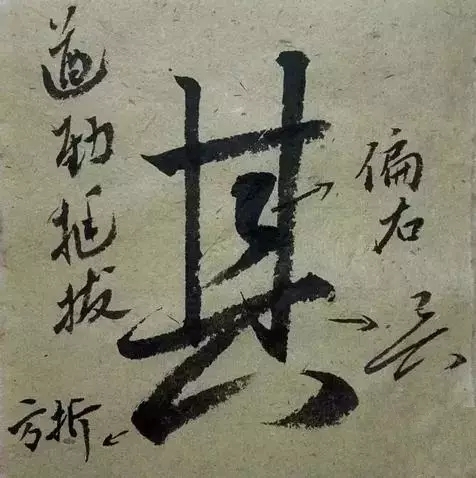 遒劲挺拔
其
偏右
方折